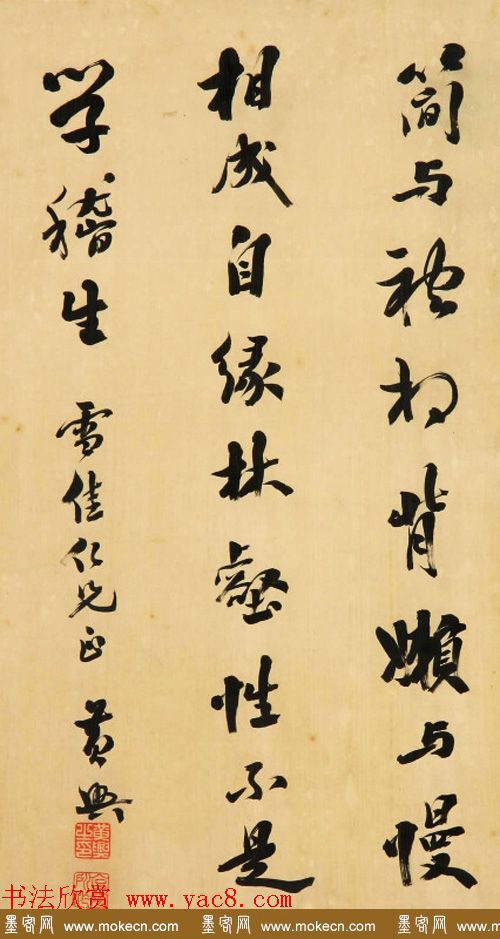 简与礼相背嬾与慢
相成自缘林壑性不是
学嵇生
雪佳仁兄正
黄兴
书法欣赏 www.yac8.com
墨客网 www.mokecn.com 墨客网 www.mokecn.com 墨客网 www.mokecn.com